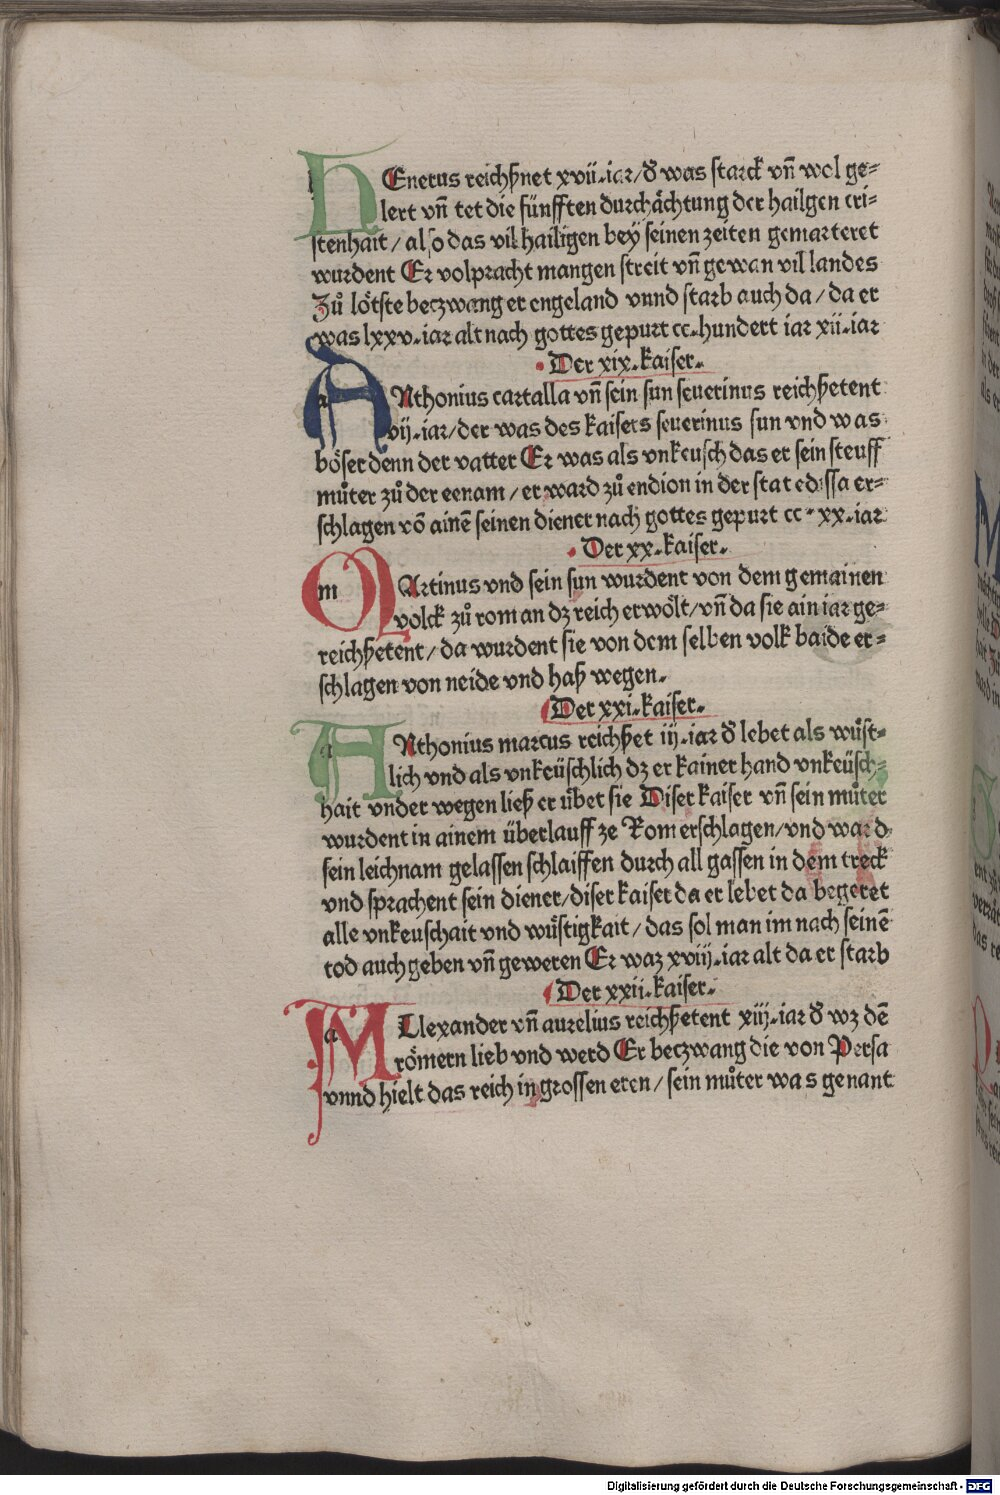 hEnerus reichßnet xvii·iar/đ was starck vñ wol ge⸗
lert vñ tet die fünfften durchächtung der hailgen cri⸗
stenhait/ also das vil hailigen bey seinen zeiten gemarteret
wurdent Er volpracht mangen streit vñ gewan vil landes
Zů lötste beczwang er engeland vnnd starb auch da/ da er
was lxxv·iar alt nach gottes gepurt cc·hundert iar xii·iar
Der xix·kaiser·
ANthonius cartalla vñ sein sun seuerinus reichßetent
vij·iar/der was des kaisers seuerinus sun vnd was
böser denn der vatter Er was als vnkeusch das er sein steuff
můter zů der eenam/ er ward zů endion in der stat edissa er⸗
schlagen võ ainẽ seinen diener nach gottes gepurt cc·xx·iar
Der xx·kaiser·
mArtinus vnd sein sun wurdent von dem gemainen
volck zů rom an dz reich erwölt/vñ da sie ain iar ge⸗
reichßetent/ da wurdent sie von dem selben volk baide er⸗
schlagen von neide vnd haß wegen·
Der xxi·kaiser·
ANthonius marcus reichßet iij·iar đ lebet als wůst⸗
lich vnd als vnkeüschlich dz er kainer hand vnkeüsch⸗
hait vnder wegen ließ er übet sie Diser kaiser vñ sein můter
wurdent in ainem überlauff ze Rom erschlagen/vnd ward
sein leichnam gelassen schlaiffen durch all gassen in dem treck
vnd sprachent sein diener/diser kaiser da er lebet da begeret
alle vnkeuschait vnd wůstigkait/ das sol man im nach seinẽ
tod auch geben vñ geweren Er waz xviij·iar alt da er starb
Der xxii·kaiser·
aLlexander vñ aurelius reichßetent xiij·iar đ wz dẽ
römern lieb vnd werd Er beczwang die von Persa
vnnd hielt das reich in grossen eren/ sein můter was genant
Digitalisierung gefördert durch die Deutsche Forschungsgemeinschaft - DFG